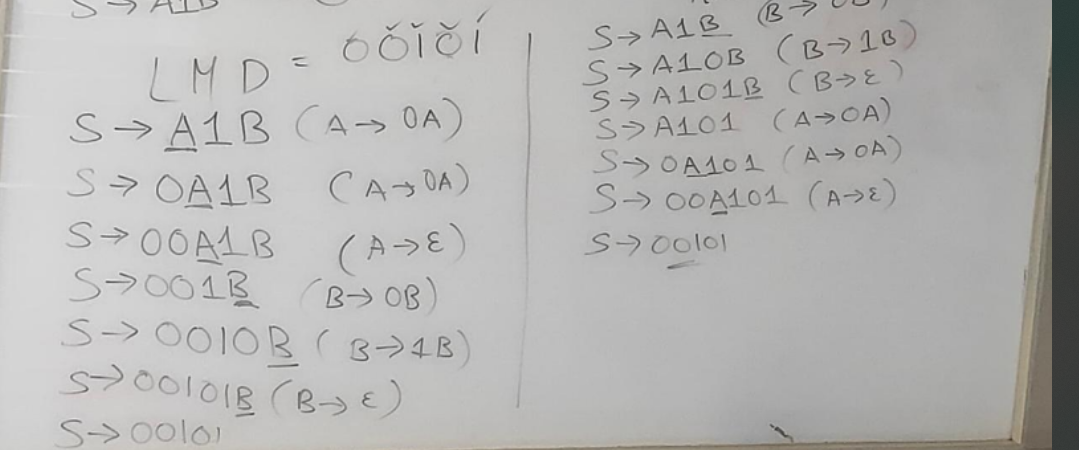 S→A1B
LMD = 00101
S→A1B (A→0A)
S→0A1B (A→0A)
S→00A1B (A→ε)
S→001B (B→0B)
S→0010B (B→1B)
S→00101B (B→ε)
S→00101
S→A1B (B→0B)
S→A10B (B→1B)
S→A101B (B→ε)
S→A101 (A→0A)
S→0A101 (A→0A)
S→00A101 (A→ε)
S→00101